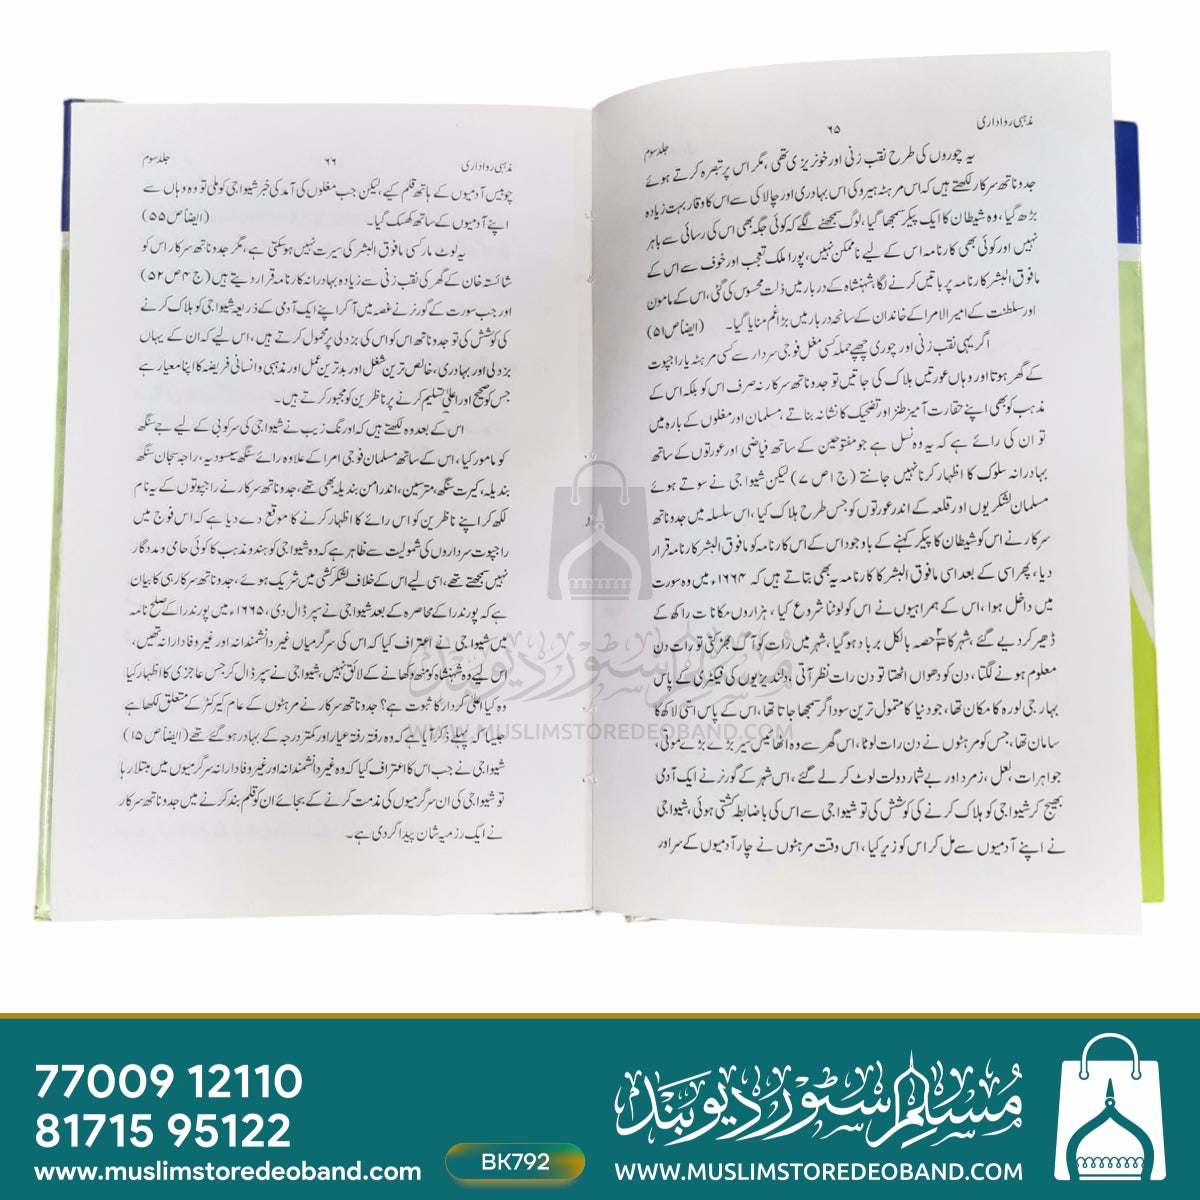 مذہبی رواداری
۶۵
جلد سوم
یہ چوروں کی طرح نقب زنی اور خونریزی تھی، مگر اس پر تبصرہ کرتے ہوئے
جدوناتھ سرکار لکھتے ہیں کہ اس مرہٹہ ہیرو کی اس بہادری اور چالاکی سے اس کا وقار بہت زیادہ
بڑھ گیا، وہ شیطان کا ایک پیکر سمجھا گیا، لوگ سمجھنے لگے کہ کوئی جگہ بھی اس کی رسائی سے باہر
نہیں اور کوئی بھی کارنامہ اس کے لیے ناممکن نہیں، پورا ملک تعجب اور خوف سے اس کے
مافوق البشر کارنامہ پر باتیں کرنے لگا، شہنشاہ کے دربار میں ذلت محسوس کی گئی، اس کے مامون
اور سلطنت کے امیر الامرا کے خاندان کے سانحہ دربار میں بڑا غم منایا گیا۔ (ایضاً ص ۵۱)
اگر یہی نقب زنی اور چوری چھپے حملہ کسی مغل فوجی سردار سے کسی مرہٹہ یا راجپوت
کے گھر ہوتا اور وہاں عورتیں ہلاک کی جاتیں تو جدوناتھ سرکار نہ صرف اس کو بلکہ اس کے
مذہب کو بھی اپنے حقارت آمیز طنز اور تضحیک کا نشانہ بناتے، مسلمان اور مغلوں کے بارہ میں
تو ان کی رائے ہے کہ یہ وہ نسل ہے جو مفتوحین کے ساتھ فیاضی اور عورتوں کے ساتھ
بہادرانہ سلوک کا اظہار کرنا نہیں جانتے (ج ۱ ص ۷) لیکن شیواجی نے سوتے ہوئے
مسلمان لشکریوں اور قلعہ کے اندر عورتوں کو جس طرح ہلاک کیا، اس سلسلہ میں جدوناتھ
سرکار نے اس کو شیطان کا پیکر کہنے کے باوجود اس کے اس کارنامہ کو مافوق البشر کارنامہ قرار
دیا، پھر اسی کے بعد اسی مافوق البشر کا کارنامہ یہ بھی بتاتے ہیں کہ ۱۶۶۴ء میں وہ سورت
میں داخل ہوا، اس کے ہمراہیوں نے اس کو لوٹنا شروع کیا، ہزاروں مکانات راکھ کے
ڈھیر کر دیے گئے، شہر کا حصہ بالکل برباد ہو گیا، شہر میں رات کو آگ بھڑکتی تو رات دن
معلوم ہونے لگتا، دن کو دھواں اٹھتا تو دن رات نظر آتی، ولندیزیوں کی فیکٹری کے پاس
بہارجی لورہ کا مکان تھا، جو دنیا کا متمول ترین سوداگر سمجھا جاتا تھا، اس کے پاس اسی لاکھ کا
سامان تھا، جس کو مرہٹوں نے دن رات لوٹا، اس گھر سے وہ اٹھائیس سیر بڑے بڑے موتی،
جواہرات لعل، زمرد اور بے شمار دولت لوٹ کر لے گئے، اس شہر کے گورنر نے ایک آدمی
بھیج کر شیواجی کو ہلاک کرنے کی کوشش کی تو شیواجی سے اس کی باضابطہ کشتی ہوئی، شیواجی
نے اپنے آدمیوں سے مل کر اس کو زیر کیا، اس وقت مرہٹوں نے چار آدمیوں کے سر اور
مذہبی رواداری
۶۶
جلد سوم
چوبیس آدمیوں کے ہاتھ قلم کیے، لیکن جب مغلوں کی آمد کی خبر شیواجی کو ملی تو وہ وہاں سے
اپنے آدمیوں کے ساتھ کھسک گیا۔ (ایضاً ص ۵۵)
یہ لوٹ مار کسی مافوق البشر کی سیرت نہیں ہو سکتی ہے، مگر جدوناتھ سرکار اس کو
شائستہ خان کے گھر کی نقب زنی سے زیادہ بہادرانہ کارنامہ قرار دیتے ہیں (ج ۴ ص ۵۲)
اور جب سورت کے گورنر نے غصہ میں آکر اپنے ایک آدمی کے ذریعہ شیواجی کو ہلاک کرنے
کی کوشش کی تو جدوناتھ اس کو اس کی بزدلی پر محمول کرتے ہیں، اس لیے کہ ان کے یہاں
بزدلی اور بہادری، خالص ترین شغل اور بدترین عمل اور مذہبی و انسانی فریضہ کا اپنا معیار ہے
جس کو صحیح اور اعلیٰ تسلیم کرنے پر ناظرین کو مجبور کرتے ہیں۔
اس کے بعد وہ لکھتے ہیں کہ اورنگ زیب نے شیواجی کی سرکوبی کے لیے جے سنگھ
کو مامور کیا، اس کے ساتھ مسلمان فوجی امرا کے علاوہ رائے سنگھ سیسودیہ، راجہ سجان سنگھ
بندیلہ، کیرت سنگھ، مترسین، اندرامن بندیلہ بھی تھے، جدوناتھ سرکار نے راجپوتوں کے یہ نام
لکھ کر اپنے ناظرین کو اس رائے کا اظہار کرنے کا موقع دے دیا ہے کہ اس فوج میں
راجپوت سرداروں کی شمولیت سے ظاہر ہے کہ وہ شیواجی کو ہندو مذہب کا کوئی حامی و مددگار
نہیں سمجھتے تھے، اسی لیے اس کے خلاف لشکر کشی میں شریک ہوئے، جدوناتھ سرکار ہی کا بیان
ہے کہ پورندر کے محاصرہ کے بعد شیواجی نے سپر ڈال دی، ۱۶۶۵ء میں پورندر کے صلح نامہ
میں شیواجی نے اعتراف کیا کہ اس کی سرگرمیاں غیر دانشمندانہ اور غیر وفادارانہ تھیں،
اس لیے وہ شہنشاہ کو منھ دکھانے کے لائق نہیں، شیواجی نے سپر ڈال کر جس عاجزی کا اظہار کیا
وہ کیا اعلیٰ کردار کا ثبوت ہے؟ جدوناتھ سرکار نے مرہٹوں کے عام کیرکٹر کے متعلق لکھا ہے
جیسا کہ پہلے ذکر آیا ہے کہ وہ رفتہ رفتہ عیار اور کمتر درجہ کے بہادر ہو گئے تھے (ایضاً ص ۱۵)
شیواجی نے جب اس کا اعتراف کیا کہ وہ غیر دانشمندانہ اور غیر وفادارانہ سرگرمیوں میں مبتلا رہا
تو شیواجی کی ان سرگرمیوں کی مذمت کرنے کے بجائے ان کو قلم بند کرنے میں جدوناتھ سرکار
نے ایک رزمیہ شان پیدا کر دی ہے۔
مسلم سٹور دیوبند
WWW.MUSLIMSTOREDEOBAND.COM
77009 12110
81715 95122
www.muslimstoredeoband.com
BK792
مسلم سٹور دیوبند
WWW.MUSLIMSTOREDEOBAND.COM